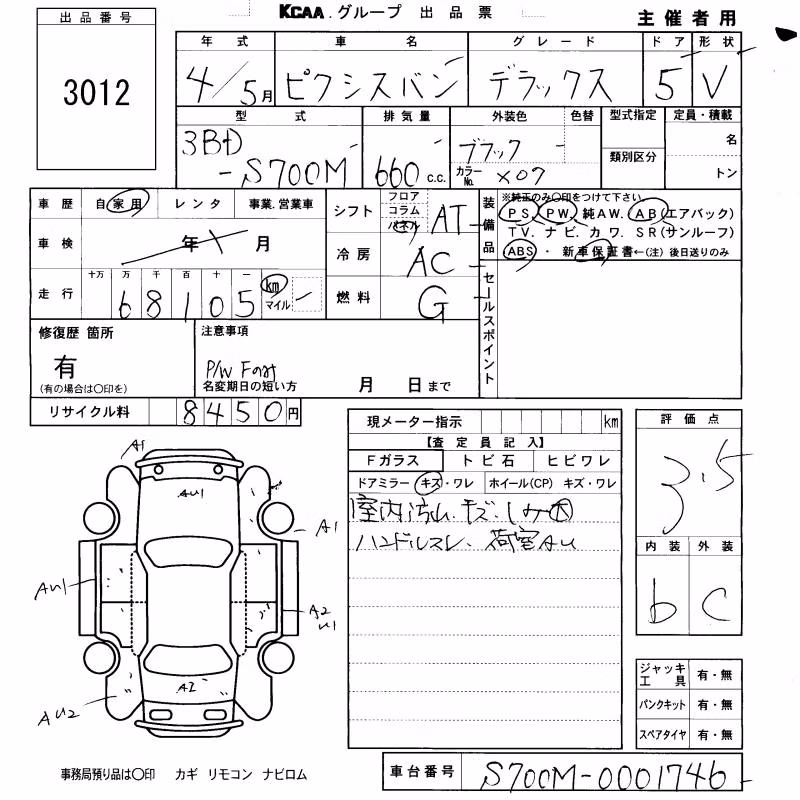 KCAA.グループ 出品票
主催者用
出品番号
3012
年式 車名 グレード ドア 形状
4/5月 ピクシスバン デラックス 5 V
型式 排気量 外装色 色替 型式指定 定員・積載
3BD
-S700M 660 c.c. ブラック
カラーNo. X07
類別区分
名
トン
車歴 自家用 レンタ 事業.営業車
車検 年 月
走行 十万 万 千 百 十 一
68105 km マイル
シフト フロア コラム パネル AT
冷房 AC
燃料 G
装備品
※純正のみ○印をつけて下さい
PS. PW. 純AW. AB(エアバック)
TV. ナビ. カワ. SR(サンルーフ)
ABS ・ 新車保証書←(注) 後日送りのみ
セールスポイント
修復歴 箇所
有
(有の場合は○印を)
注意事項
P/W Fのみ
名変期日の短い方 月 日まで
リサイクル料 8450円
現メーター指示 km
【査定員記入】
Fガラス トビ石 ヒビワレ
ドアミラー キズ・ワレ ホイール(CP) キズ・ワレ
室内汚れ.キズ.しみ大
ハンドルスレ. 荷室AU
評価点
3.5
内装 外装
b C
A1
AU1
A1
AU1
A2
U1
A2
AU2
ジャッキ工具 有・無
パンクキット 有・無
スペアタイヤ 有・無
事務局預り品は○印 カギ リモコン ナビロム
車台番号 S700M-0001746